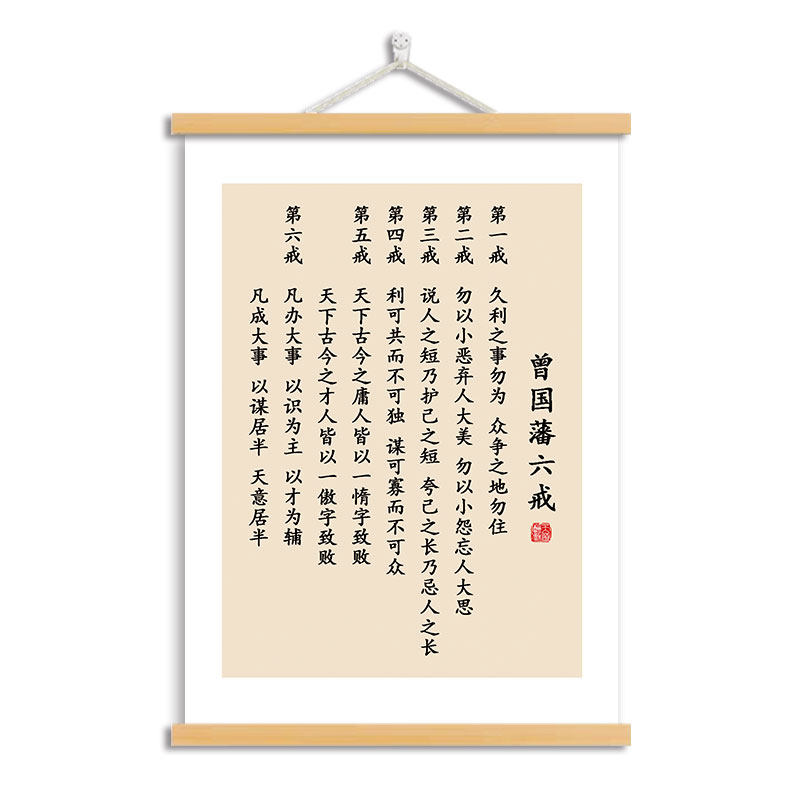 曾国藩六戒
第一戒 久利之事勿为 众争之地勿住
第二戒 勿以小恶弃人大美 勿以小怨忘人大思
第三戒 说人之短乃护己之短 夸己之长乃忌人之长
第四戒 利可共而不可独 谋可寡而不可众
第五戒 天下古今之庸人皆以一惰字致败
天下古今之才人皆以一傲字致败
第六戒 凡办大事 以识为主 以才为辅
凡成大事 以谋居半 天意居半